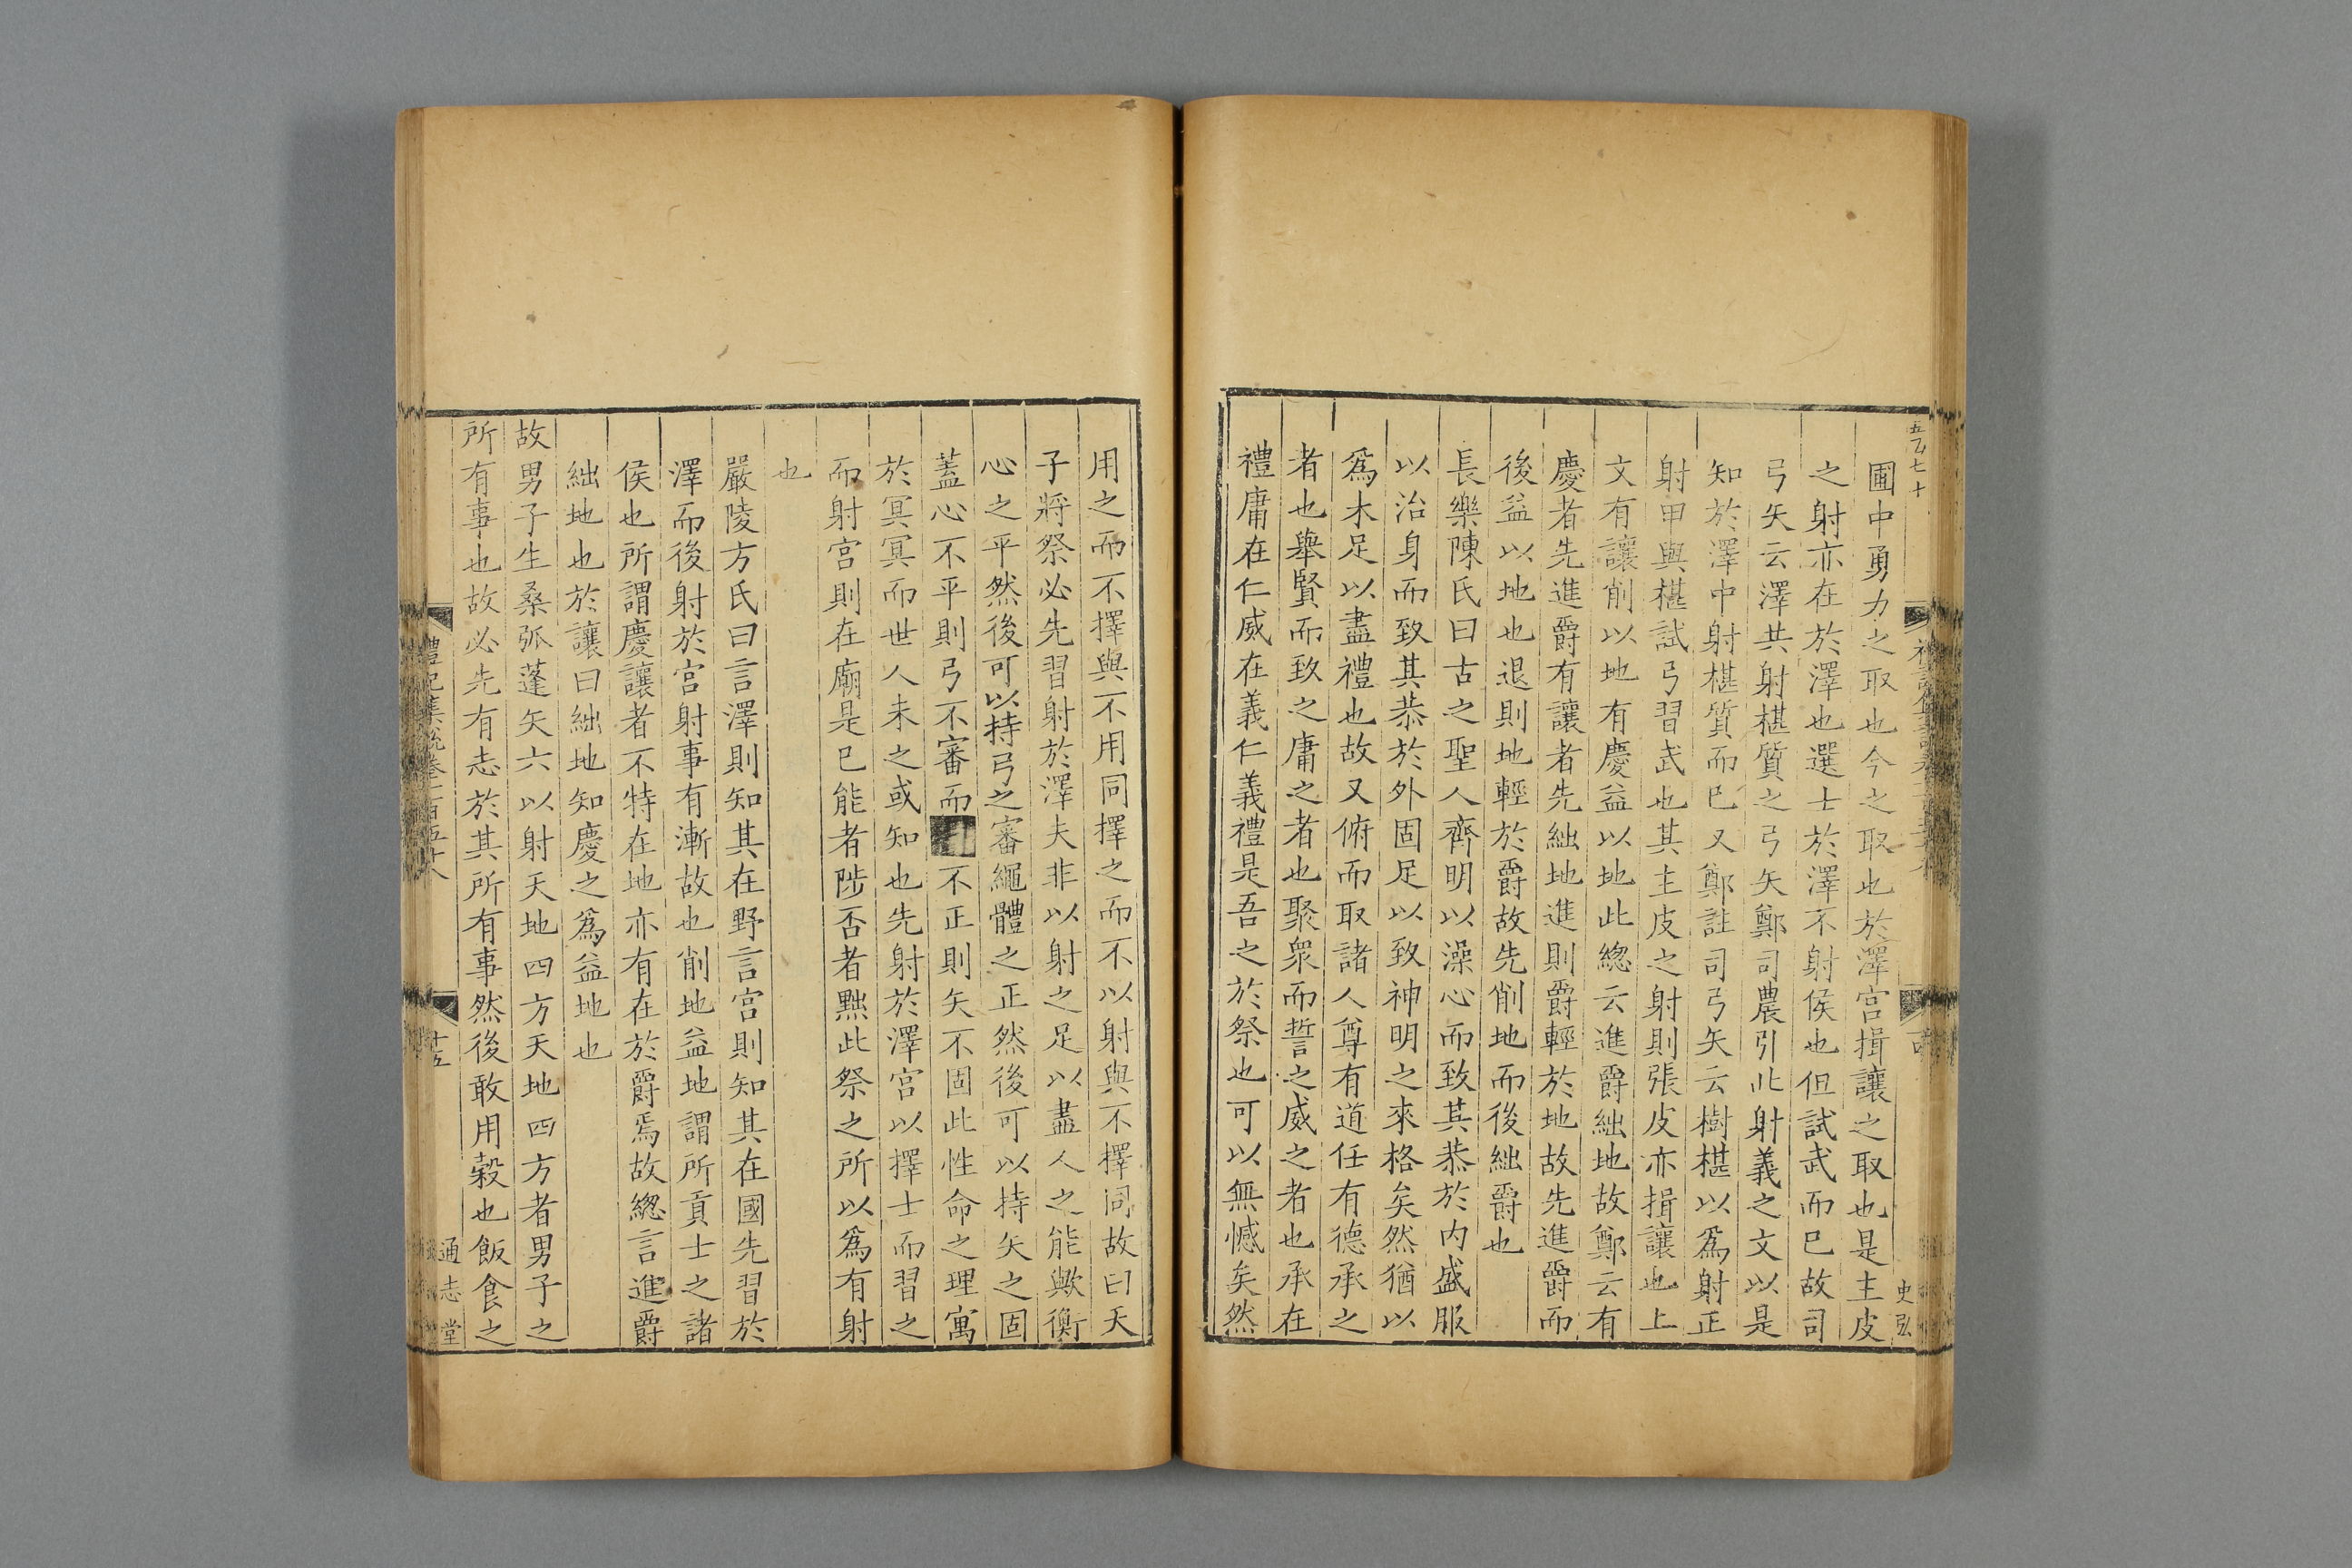 圃中勇力之取也今之取也於澤宫揖讓之取也是主皮
之射亦在於澤也選士於澤不射侯也但試武而已故司
弓矢云澤共射椹質之弓矢鄭司農引此射義之文以是
知於澤中射椹質而已又鄭註司弓矢云樹椹以爲射正
射甲與椹試弓習武也其主皮之射則張皮亦揖讓也上
文有讓削以地有慶益以地此緫云進爵絀地故鄭云有
慶者先進爵有讓者先絀地進則爵輕於地故先進爵而
後益以地也退則地輕於爵故先削地而後絀爵也
長樂陳氏曰古之聖人齊明以澡心而致其恭於内盛服
以治身而致其恭於外固足以致神明之來格矣然猶以
爲木足以盡禮也故又俯而取諸人尊有道任有德承之
者也舉賢而致之庸之者也聚衆而誓之威之者也承在
禮庸在仁威在義仁義禮是吾之於祭也可以無憾矣然
史弘
用之而不擇與不用同擇之而不以射與不擇同故曰天
子將祭必先習射於澤夫非以射之足以盡人之能歟衡
心之平然後可以持弓之審繩體之正然後可以持矢之固
蓋心不平則弓不審而不正則矢不固此性命之理寓
於冥冥而世人未之或知也先射於澤宫以擇士而習之
而射宫則在廟是已能者陟否者黜此祭之所以爲有射
也
嚴陵方氏曰言澤則知其在野言宫則知其在國先習於
澤而後射於宫射事有漸故也削地益地謂所貢士之諸
侯也所謂慶讓者不特在地亦有在於爵焉故緫言進爵
絀地也於讓曰絀地知慶之爲益地也
故男子生桑弧蓬矢六以射天地四方天地四方者男子之
所有事也故必先有志於其所有事然後敢用榖也飯食之
禮記集說卷一百五十八
十五
通志堂